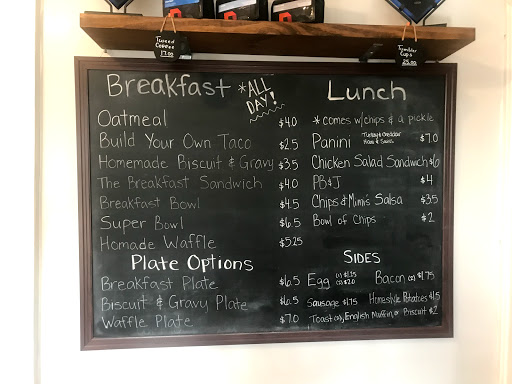 Tweed
Coffee
17.00
Tumbler
Cups
25.00
Breakfast *ALL
DAY!
Oatmeal $4.0
Build Your Own Taco $2.5
Homemade Biscuit & Gravy $3.5
The Breakfast Sandwich $4.0
Breakfast Bowl $4.5
Super Bowl $6.5
Homade Waffle $5.25
Plate Options
Breakfast Plate $6.5
Biscuit & Gravy Plate $6.5
Waffle Plate $7.0
Lunch
* comes w/chips & a pickle
Panini Turkey & Cheddar $7.0
Ham & Swiss
Chicken Salad Sandwich $6
PB&J $4
Chips & Mimi's Salsa $3.5
Bowl of Chips $2
SIDES
Egg (1) $1.25 Bacon (2) $1.75
(2) $2.0
Sausage $1.75 Homestyle Potatoes $1.5
Toast (2), English Muffin, or Biscuit $2